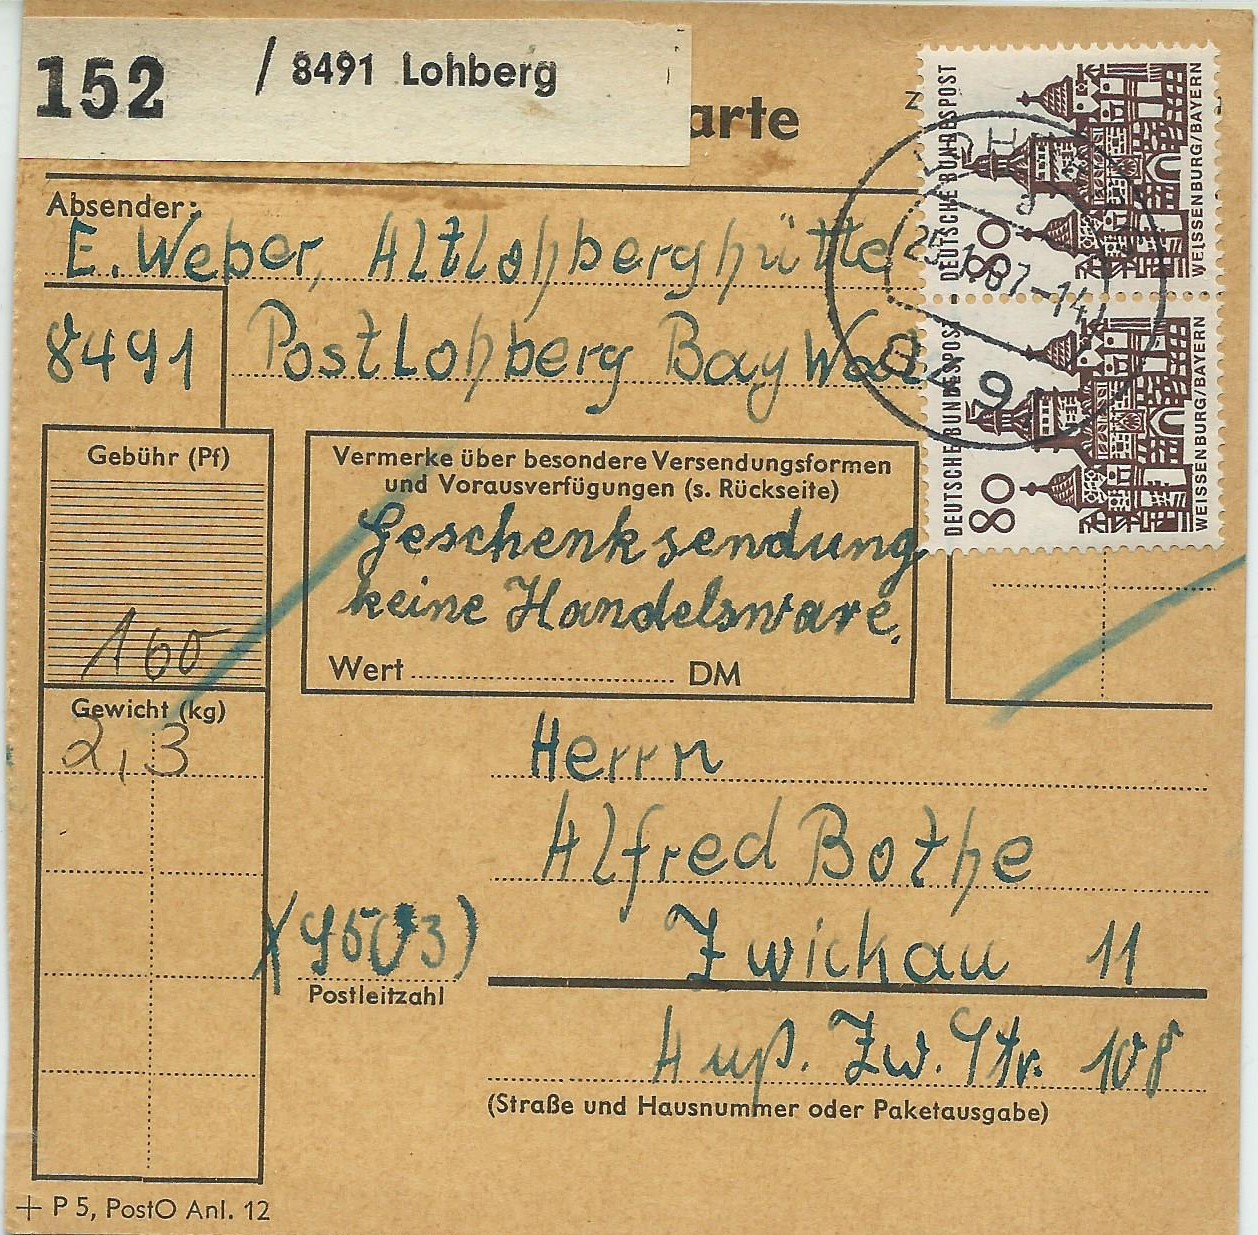 152 / 8491 Lohberg
arte
Absender:
E. Weber, Altlohberghütte
8491 Postlohberg Bay Wald
DEUTSCHE BUNDESPOST
80
WEISSENBURG/BAYERN
DEUTSCHE BUNDESPOST
80
WEISSENBURG/BAYERN
849
Gebühr (Pf)
160
Vermerke über besondere Versendungsformen
und Vorausverfügungen (s. Rückseite)
Geschenksendung
keine Handelsware.
Wert DM
Gewicht (kg)
2,3
Herrn
Alfred Bothe
(9503) Zwickau 11
Postleitzahl
Zw. Str. 108
(Straße und Hausnummer oder Paketausgabe)
+ P 5, PostO Anl. 12